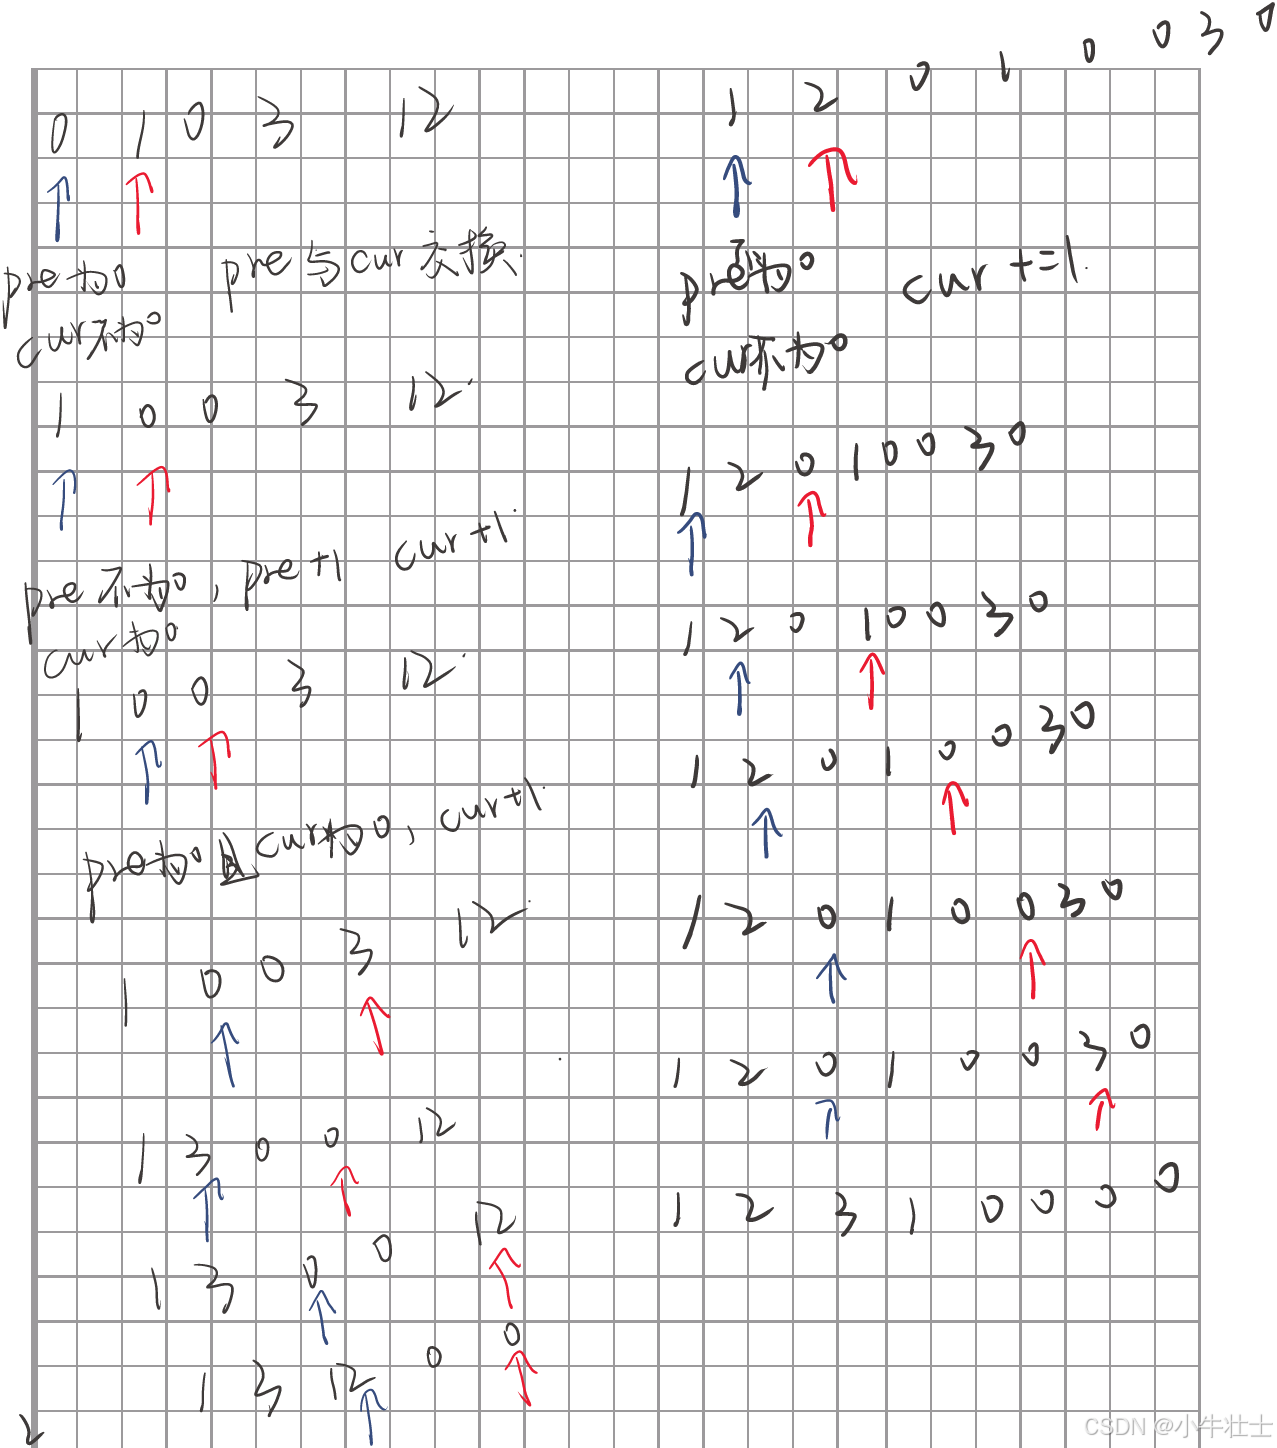 0 1 0 3 12
pre为0 pre与cur交换.
cur不为0
1 0 0 3 12.
pre不为0, pre+1 cur+1.
cur为0
1 0 0 3 12.
pre为0且cur为0, cur+1.
1 0 0 3 12.
1 3 0 0 12
1 3 0 0 12
1 3 12 0 0
2
1 2 0 1 0 0 3 0
pre不为0 cur +=1.
cur不为0
1 2 0 1 0 0 3 0
1 2 0 1 0 0 3 0
1 2 0 1 0 0 3 0
1 2 0 1 0 0 3 0
1 2 0 1 0 0 3 0
1 2 3 1 0 0 0 0
CSDN @小牛壮士